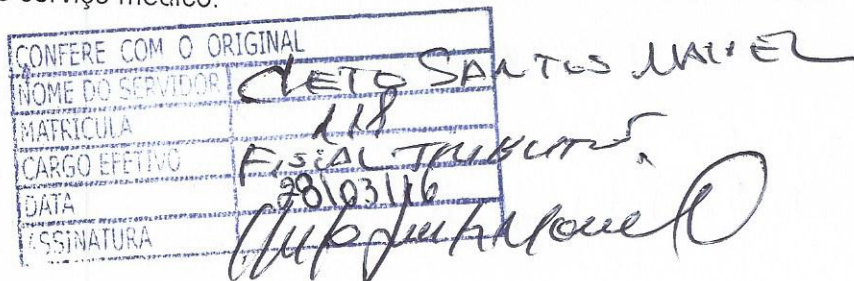 serviço médico.
CONFERE COM O ORIGINAL
NOME DO SERVIDOR CLETO SANTOS
MATRICULA 118
CARGO EFETIVO FISCAL TRIBUTOS.
DATA 28/03/16
ASSINATURA